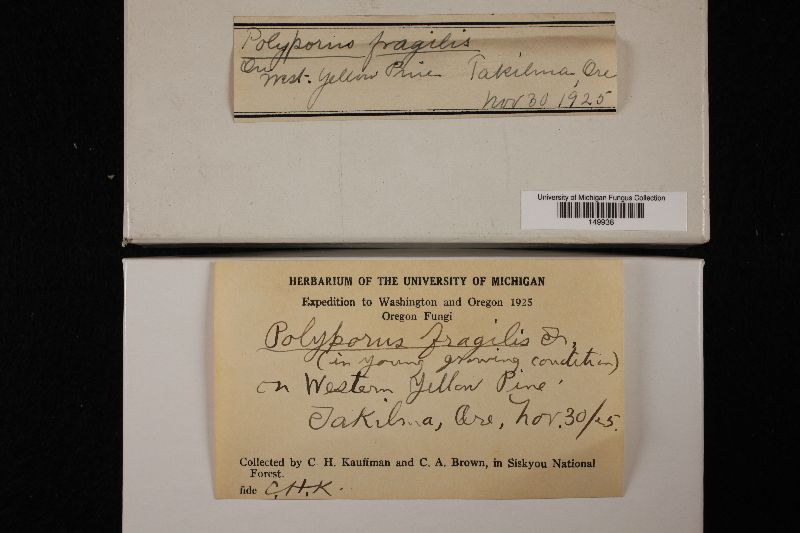 Polyporus fragilis
On West. Yellow Pine Takilma, Ore
Nov 30 1925
University of Michigan Fungus Collection
149936
HERBARIUM OF THE UNIVERSITY OF MICHIGAN
Expedition to Washington and Oregon 1925
Oregon Fungi
Polyporus fragilis Fr.
(in young growing condition)
on Western Yellow Pine
Takilma, Ore, Nov. 30/25.
Collected by C. H. Kauffman and C. A. Brown, in Siskyou National
Forest.
fide C.H.K.